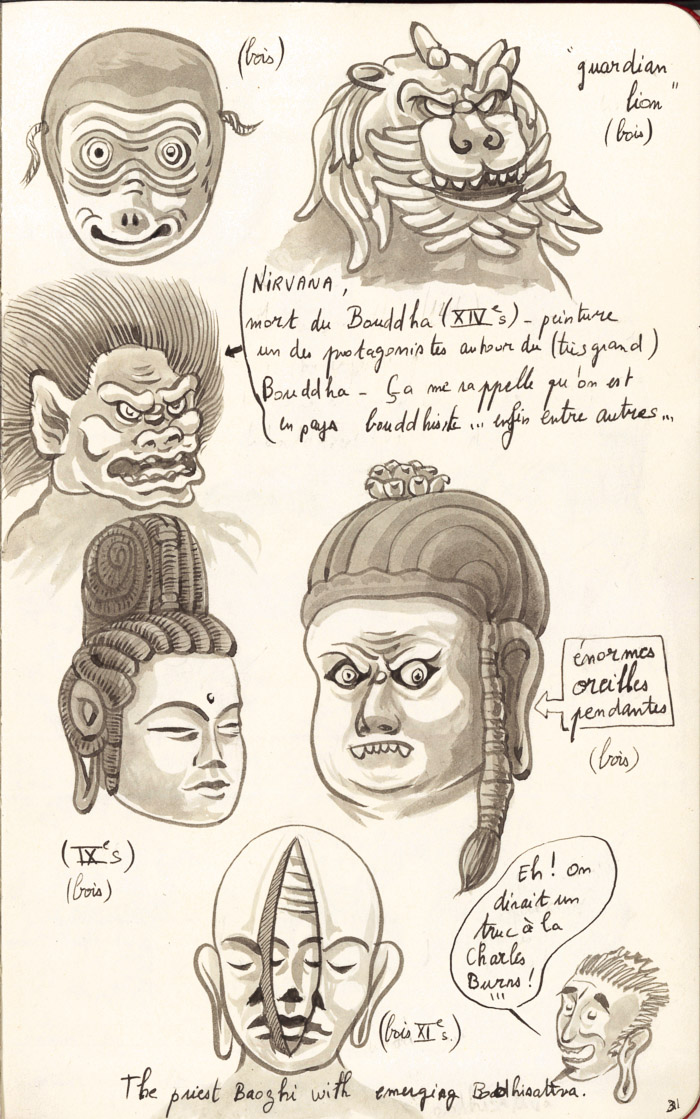 (bois)
"guardian
lion"
(bois)
NIRVANA,
mort du Bouddha (XIVe s) - peinture
un des protagonistes autour du (très grand)
Bouddha - Ça me rappelle qu'on est
en pays bouddhiste... enfin entre autres...
énormes
oreilles
pendantes
(bois)
(IXe s)
(bois)
Eh! On
dirait un
truc à la
Charles
Burns!
!!!
(bois XIe s.)
The priest Baozhi with emerging Bodhisattva.
31